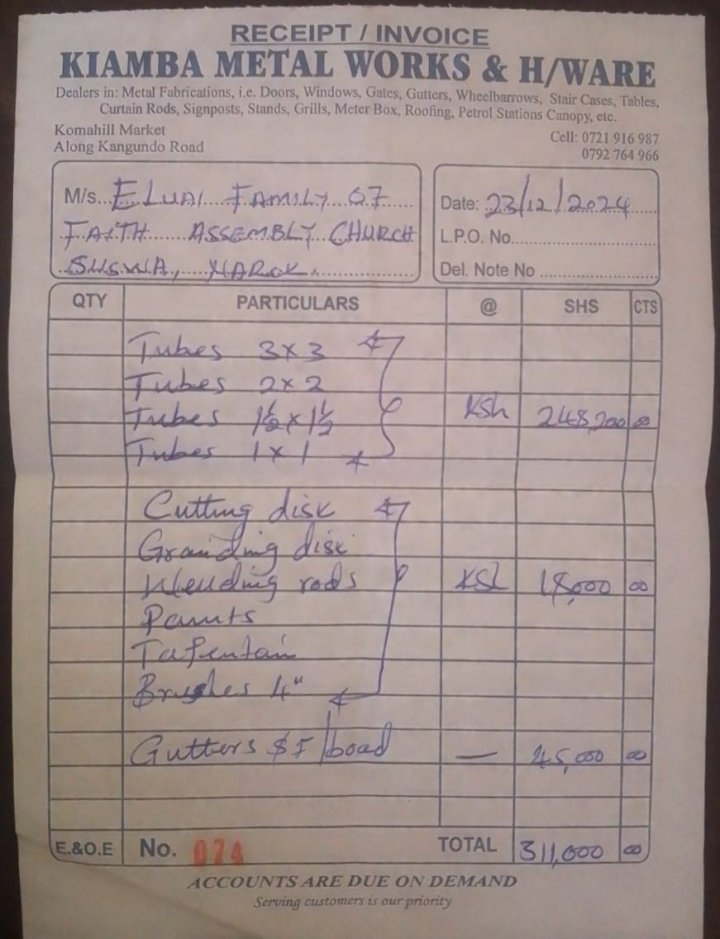 RECEIPT / INVOICE
KIAMBA METAL WORKS & H/WARE
Dealers in: Metal Fabrications, i.e. Doors, Windows, Gates, Gutters, Wheelbarrows, Stair Cases, Tables,
Curtain Rods, Signposts, Stands, Grills, Meter Box, Roofing, Petrol Stations Canopy, etc.
Komahill Market
Along Kangundo Road
Cell: 0721 916 987
0792 764 966
M/s. ELUAI FAMILY OF
FAITH ASSEMBLY CHURCH
SUSWA, NAROK.
Date: 23/12/2024
L.P.O. No.
Del. Note No
QTY PARTICULARS @ SHS CTS
Tubes 3x3
Tubes 2x2
Tubes 1½x1½ KSh 248,200 00
Tubes 1x1
Cutting disk
Grainding disk
Wending rods KSh 18,000 00
Paints
Tafentain
Brushes 4"
Gutters $ F/boad — 45,000 00
E.&O.E No. 074 TOTAL 311,000 00
ACCOUNTS ARE DUE ON DEMAND
Serving customers is our priority